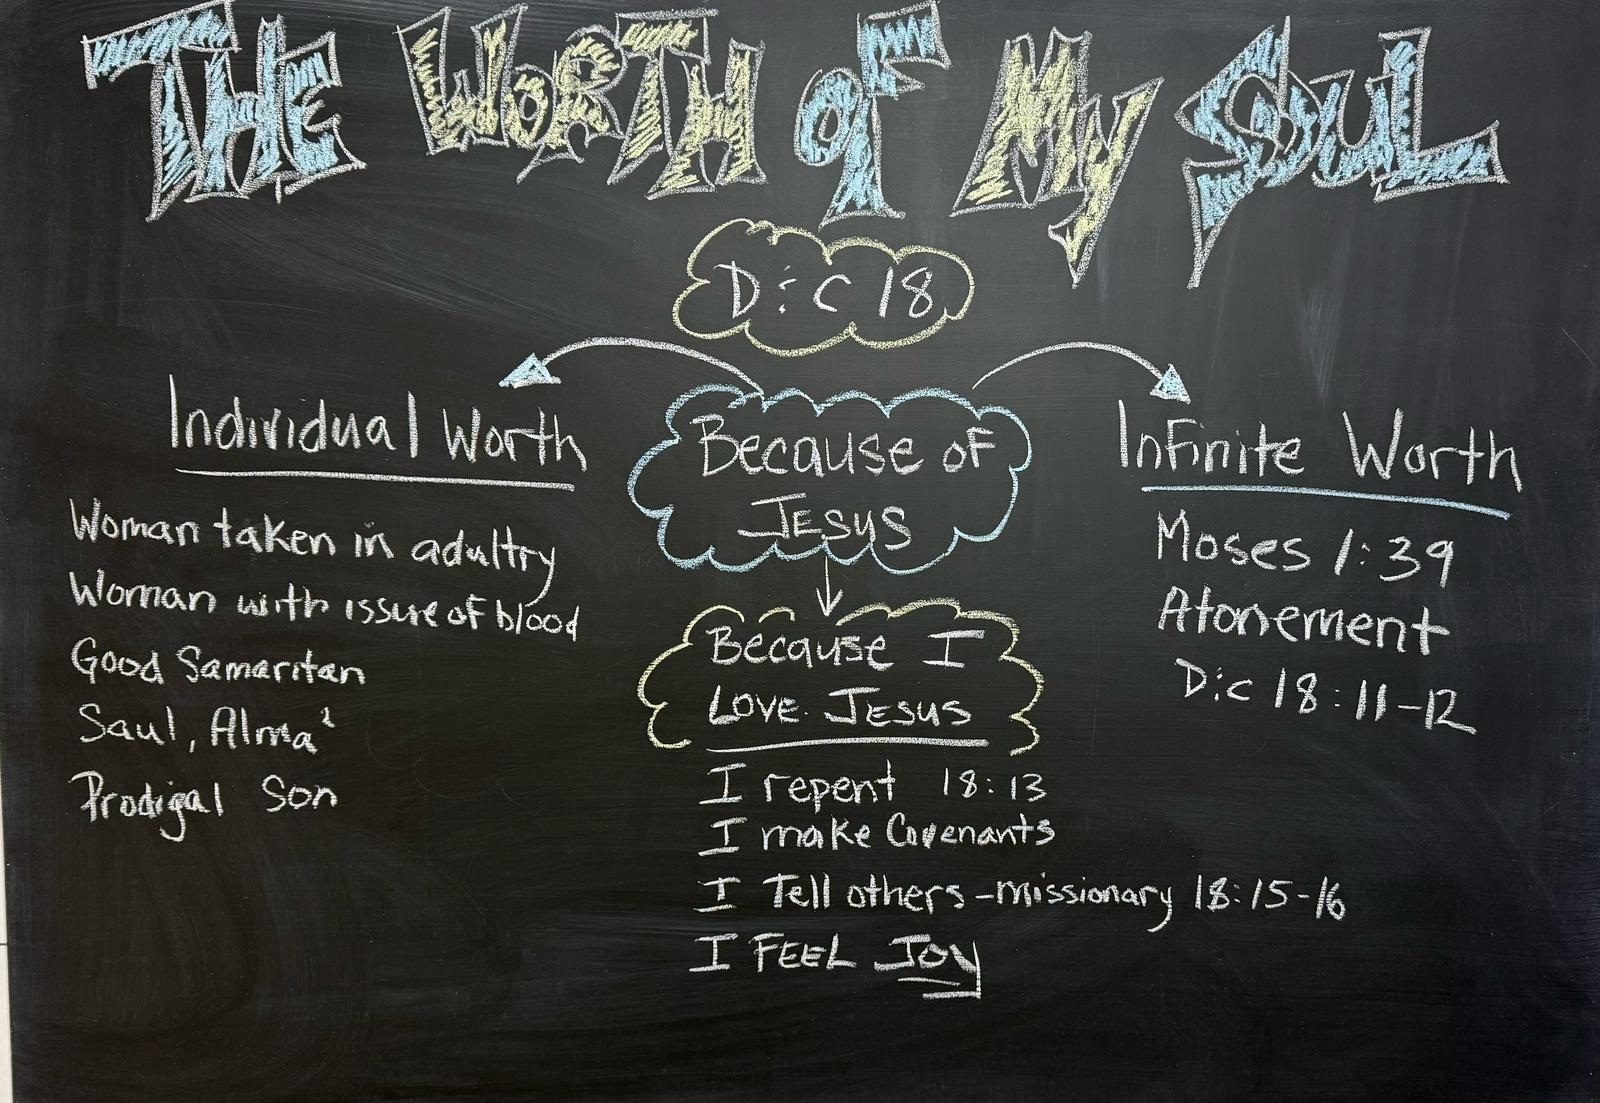 THE WORTH of My SOUL
D&C 18
Individual Worth
Woman taken in adultry
Woman with issure of blood
Good Samaritan
Saul, Alma²
Prodigal Son
Because of
JESUS
Because I
Love JESUS
I repent 18:13
I make Covenants
I Tell others - missionary 18:15-16
I FEEL Joy
Infinite Worth
Moses 1:39
Atonement
D&C 18:11-12